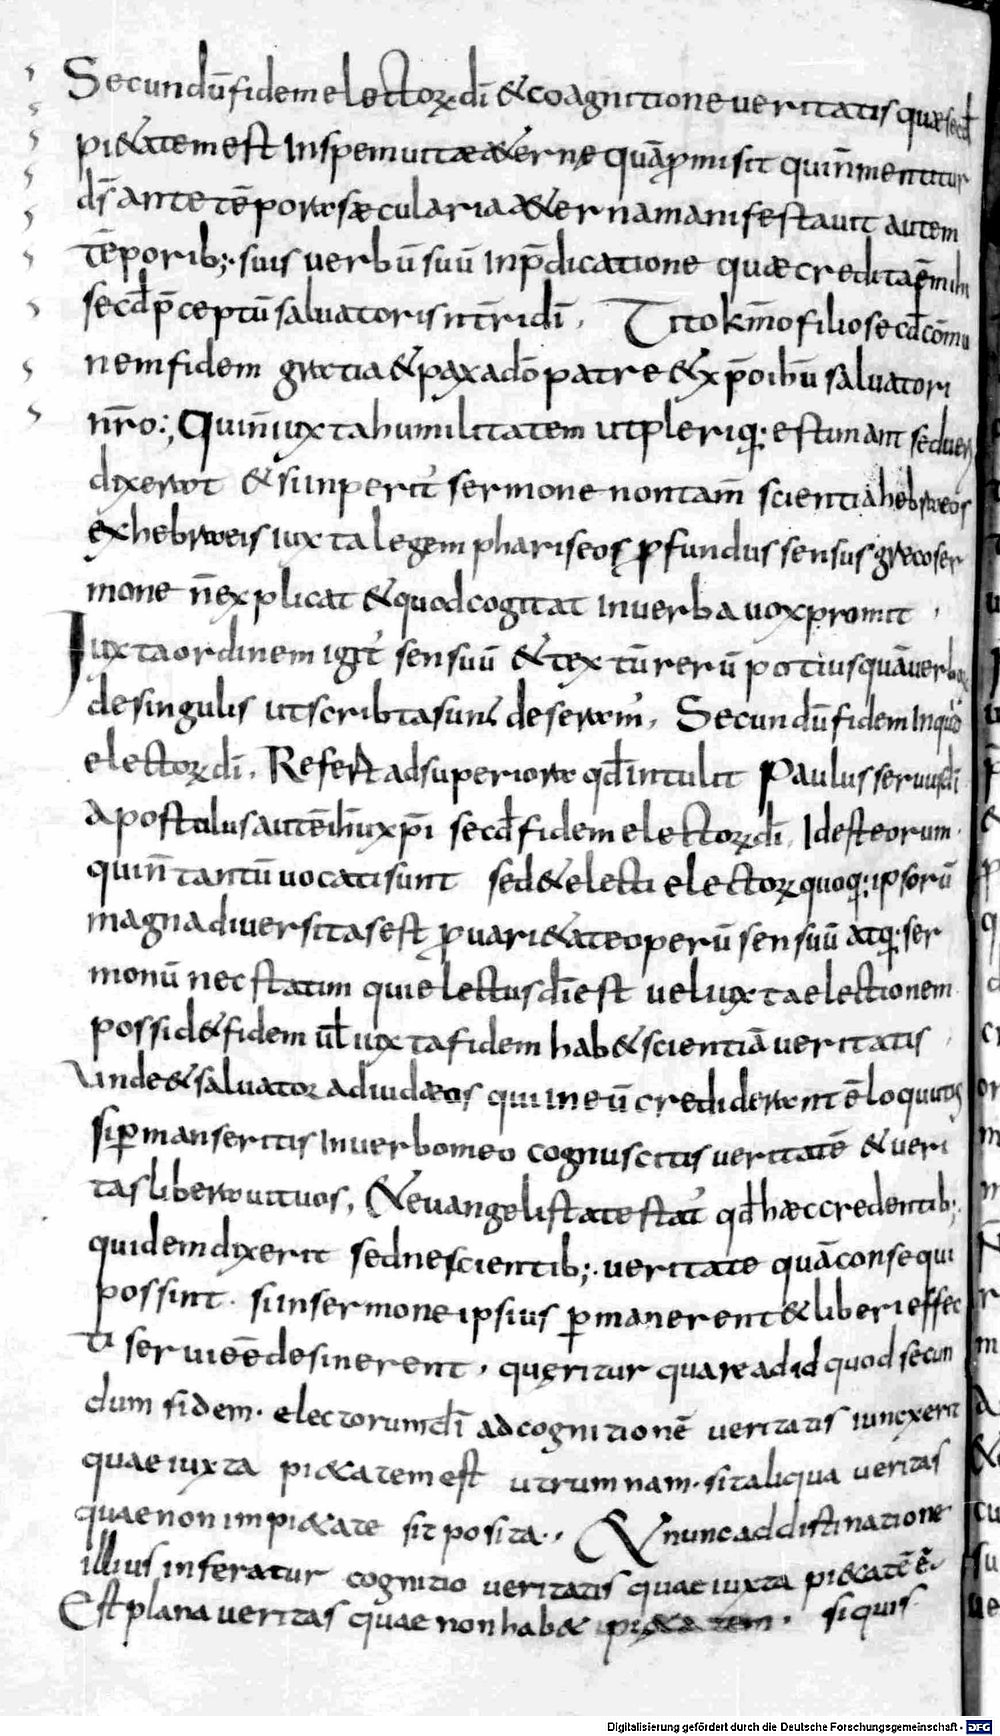 Secundū fidem electoꝝ dī & coagnitionē veritatis quæ secđ
pi&atem est In spem uitæ æ&ernę quā ꝓmisit qui n̄ mentitur
dr̄ ante tēpora sæcularia æ&erna manifestauit autem
tēporib; suis uerbū suū In p̄dicatione quæ credita ē mihi
secđ p̄ceptū saluatoris nr̄i dī. Tito kr̄mo filio secđ cōmu
nem fidem gratia & pax a dō patre & xp̄o ihū saluatori
nr̄o; Qui n̄ iuxta humilitatem ut pleriq; estimant sed uere
dixerat & si Inperit' sermone non tam̄ scientia hebraeos
ex hebraeis iuxta legem phariseos ꝓfundus sensus greco ser
mone n̄ explicat & quod cogitat In uerba uox promit,
Iuxta ordinem igit' sensuū & textū rerū potius quā uerboꝝ
de singulis ut scribta sunt deseram'. Secundū fidem Inquid
electoꝝ dī. Refert ad superiora qđ intulit Paulus seruus dī
Apostulus autē ihū xp̄i secđ fidem electoꝝ dī. Id est eorum
qui n̄ tantū uocati sunt sed & electi electoꝝ quoq; ipsorū
magna diuersitas est ꝓ uari&ate operū sensuū atq; ser
monū nec statim qui electus dī est uel iuxta electionem
possid& fidem ul̄ iuxta fidem hab& scientiā ueritatis,
Unde & saluator ad iudæos qui in eū crediderant ē loquutus
si ꝑmanseritis In uerbo meo cognuscitis ueritatē & ueri
tas liberauit uos, & euangelista testat' qđ hæc credentib;
quidem dixerit sed nescientib; ueritate quā consequi
possint. si in sermone ipsius ꝑmanerent & liberi effec
ti serui ēē desinerent, quęritur quare ad id quod secun
dum fidem. electorum dī ad cognitionē veritatis iuncxerit
quae iuxta pi&atem est utrumnam. sit aliqua veritas
quae non im pi&ate sit posita., & nunc ad distinatione
illius inferatur cognitio veritatis quae iuxta pi&atē ē.
Est plana veritas quae non hab& pi&atem. si quis